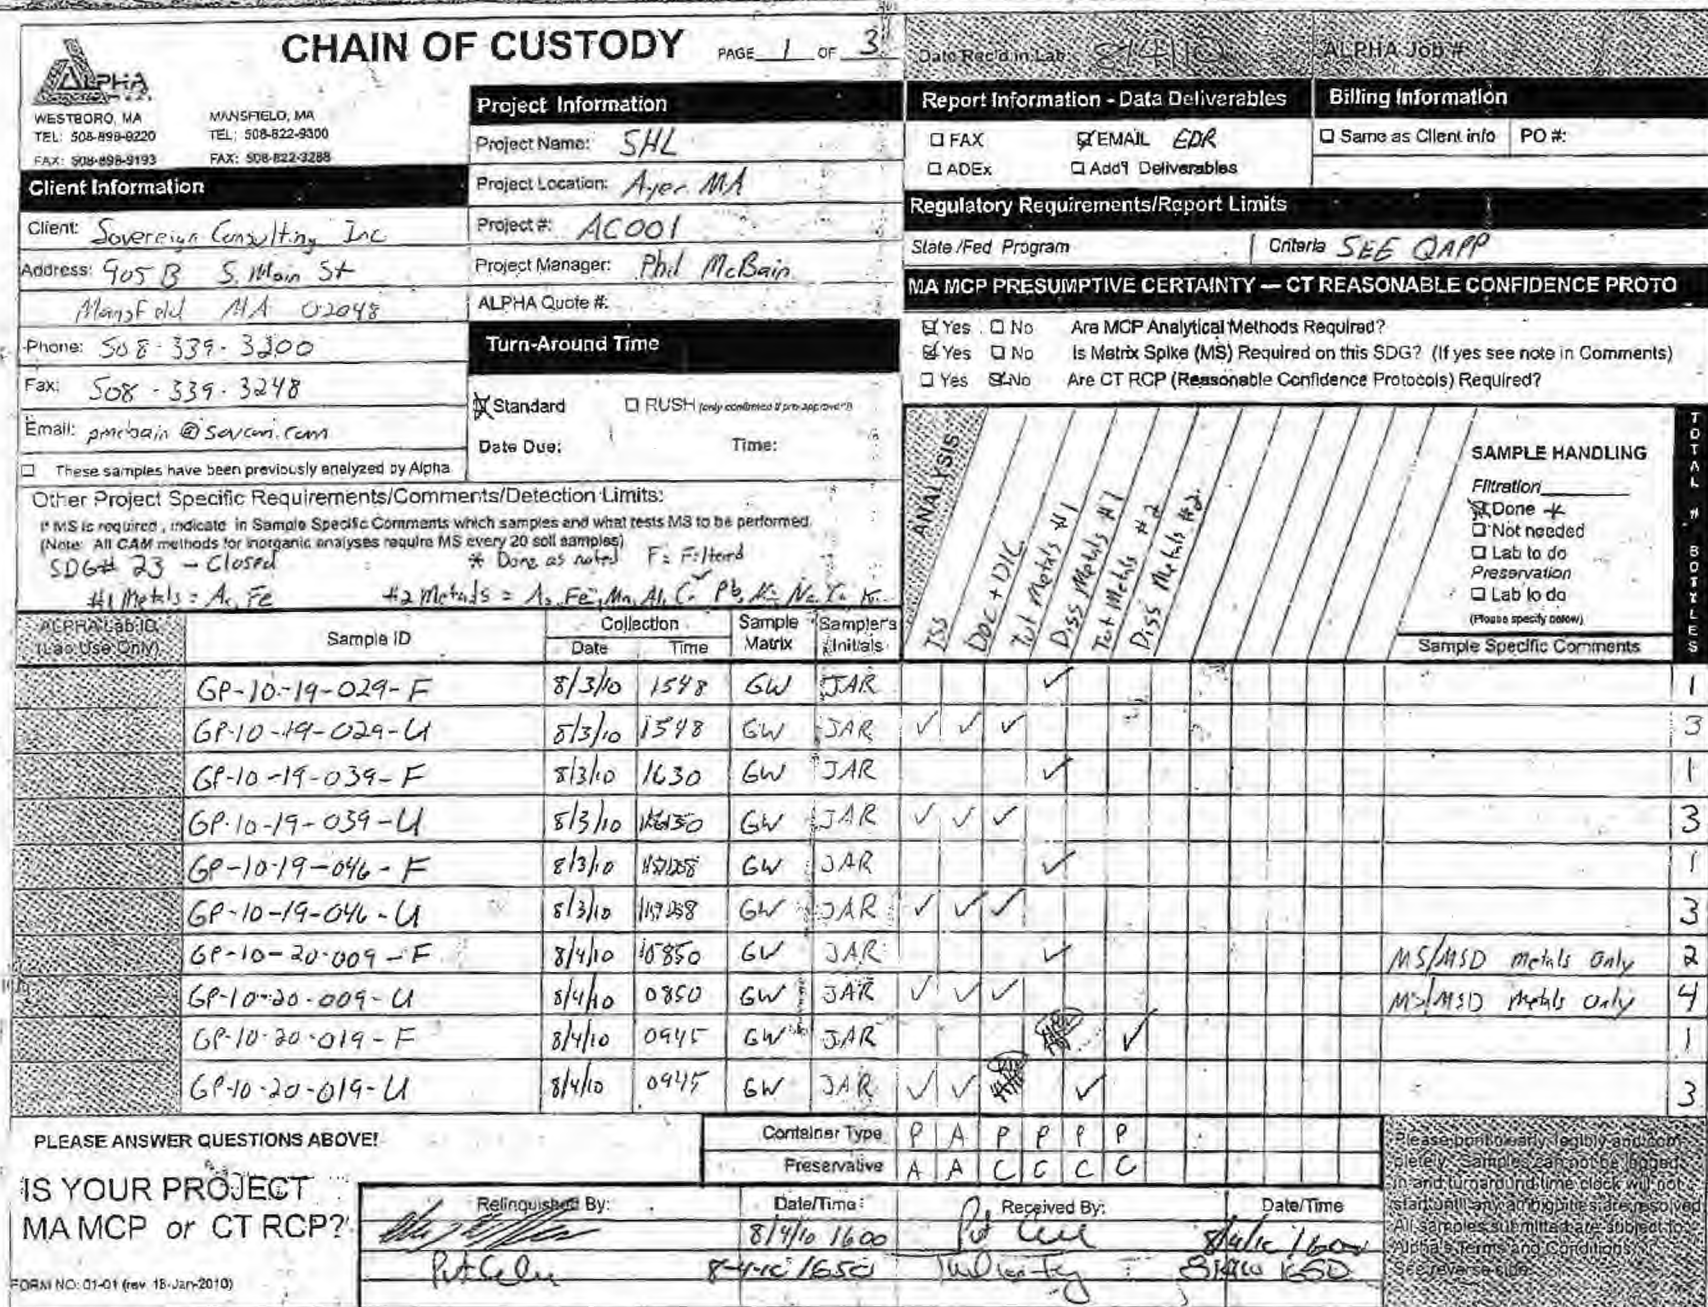 CHAIN OF CUSTODY PAGE 1 OF 3
Date Rec'd in Lab: 8/4/10 ALPHA Job #:
ALPHA
WESTBORO, MA MANSFIELD, MA
TEL: 508-898-9220 TEL: 508-822-9300
FAX: 508-898-9193 FAX: 508-822-3288
Client Information
Client: Sovereign Consulting Inc
Address: 905 B S. Main St
Mansfield MA 02048
Phone: 508-339-3200
Fax: 508-339-3248
Email: pmcbain@sovcon.com
☐ These samples have been previously analyzed by Alpha
Project Information
Project Name: SHL
Project Location: Ayer MA
Project #: AC001
Project Manager: Phil McBain
ALPHA Quote #:
Turn-Around Time
☒ Standard ☐ RUSH (only confirmed if pre-approved!)
Date Due: Time:
Report Information - Data Deliverables
☐ FAX ☑ EMAIL EDR
☐ ADEx ☐ Add'l Deliverables
Billing Information
☐ Same as Client info PO #:
Regulatory Requirements/Report Limits
State /Fed Program Criteria SEE QAPP
MA MCP PRESUMPTIVE CERTAINTY — CT REASONABLE CONFIDENCE PROTO
☑ Yes ☐ No Are MCP Analytical Methods Required?
☑ Yes ☐ No Is Matrix Spike (MS) Required on this SDG? (If yes see note in Comments)
☐ Yes ☑ No Are CT RCP (Reasonable Confidence Protocols) Required?
Other Project Specific Requirements/Comments/Detection Limits:
If MS is required, indicate in Sample Specific Comments which samples and what tests MS to be performed.
(Note: All CAM methods for inorganic analyses require MS every 20 soil samples)
SDG# 23 - Closed * Done as noted F = Filtered
#1 Metals = As, Fe #2 Metals = As, Fe, Mn, Al, Pb,
ANALYSIS
TSS
DOC + DIC
Tot Metals #1
Diss Metals #1
Tot Metals #2
Diss Metals #2
SAMPLE HANDLING
Filtration
☒ Done *
☐ Not needed
☐ Lab to do
Preservation
☐ Lab to do
(Please specify below)
TOTAL # BOTTLES
ALPHA Lab ID (Lab Use Only) Sample ID Collection Date Time Sample Matrix Sampler's Initials Sample Specific Comments
GP-10-19-029-F 8/3/10 1548 GW JAR ✓ 1
GP-10-19-029-U 8/3/10 1548 GW JAR ✓ ✓ ✓ 3
GP-10-19-039-F 8/3/10 1630 GW JAR ✓ 1
GP-10-19-039-U 8/3/10 GW JAR ✓ ✓ ✓ 3
GP-10-19-046-F 8/3/10 GW JAR ✓ 1
GP-10-19-046-U 8/3/10 GW JAR ✓ ✓ ✓ 3
GP-10-20-009-F 8/4/10 0850 GW JAR ✓ MS/MSD Metals Only 2
GP-10-20-009-U 8/4/10 0850 GW JAR ✓ ✓ ✓ MS/MSD Metals Only 4
GP-10-20-019-F 8/4/10 0945 GW JAR ✓ 1
GP-10-20-019-U 8/4/10 0945 GW JAR ✓ ✓ ✓ 3
PLEASE ANSWER QUESTIONS ABOVE!
Container Type P A P P P P
Preservative A A C C C C
IS YOUR PROJECT
MA MCP or CT RCP?
Relinquished By: Date/Time: Received By: Date/Time
8/4/10 1600 8/4/10 1600
8-4-10 1650 8/4/10 1650
Please print clearly, legibly and completely. Samples can not be logged in and turnaround time clock will not start until any ambiguities are resolved. All samples submitted are subject to Alpha's Terms and Conditions. See reverse side.
FORM NO: 01-01 (rev. 18-Jan-2010)